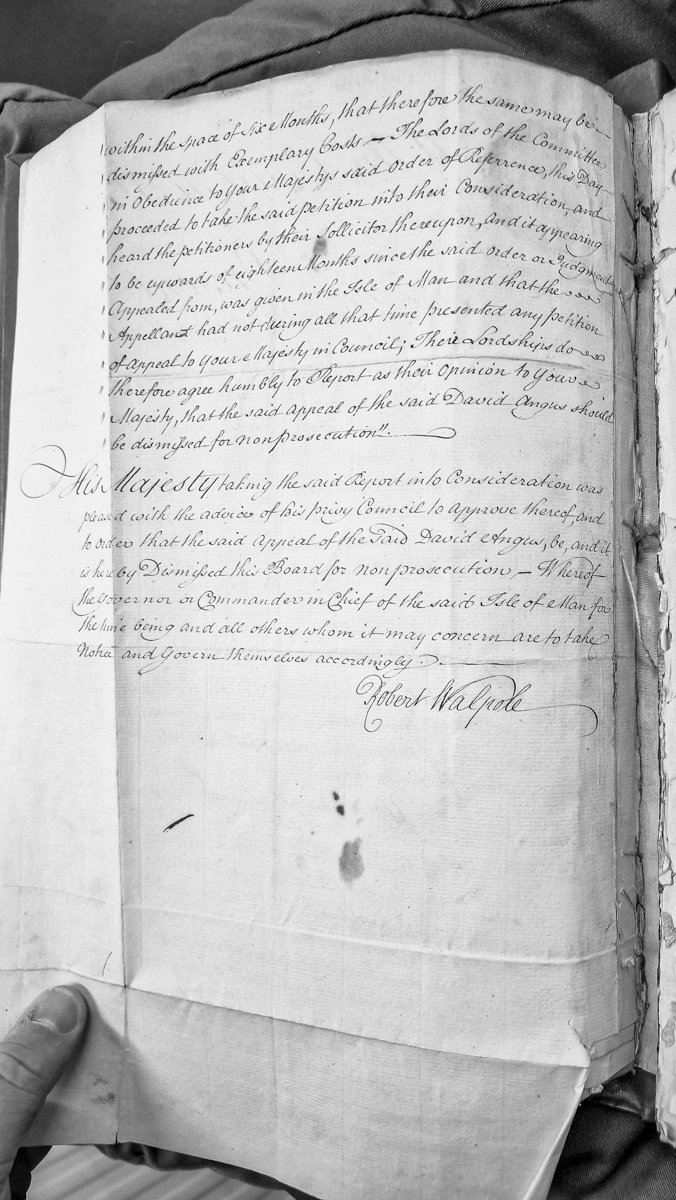 within the space of Six Months, that therefore the same may be
dismissed with Exemplary Costs — The Lords of the Committee
in Obedience to your Majestys said Order of Referrence, this Day
proceeded to take the said petition into their Consideration, and
heard the petitioners by their Sollicitor thereupon, and it appearing
to be upwards of eighteen Months since the said Order or Judgment
Appealed from, was given in the Isle of Man and that the
Appellant had not during all that time presented any petition
of Appeal to your Majesty in Council; Their Lordships do
therefore agree humbly to Report as their Opinion to your
Majesty, that the said Appeal of the said David Angus should
be dismissed for nonprosecution".
His Majesty taking the said Report into Consideration was
pleased with the advice of his privy Council to approve thereof, and
to order that the said Appeal of the said David Angus, be, and it
is hereby Dismissed this Board for nonprosecution, — Whereof
the Governor or Commander in Chief of the said Isle of Man for
the time being and all others whom it may concern are to take
Notice and Govern themselves accordingly.
Robert Walpole